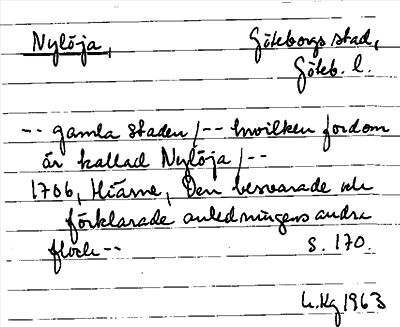 Nylöja, Göteborgs stad,
Göteb. l.
-- gamla staden /-- hwilken fordom
är kallad Nylöja /--
1706, Hiärne, Den besvarade och
förklarade anledningens andra
flock -- S. 170.
1963